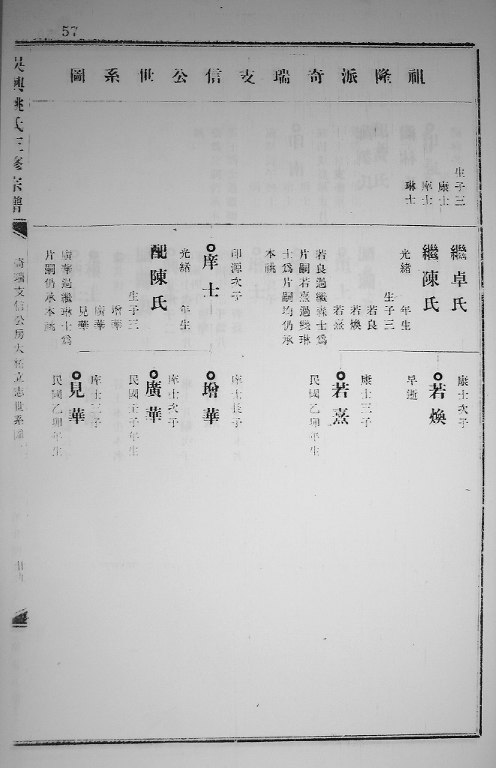 57
祖隆派奇瑞支信公世系圖
吳興姚氏三修宗譜
生子三
康士
庠士
琳士
繼卓氏
繼陳氏
光緒 年生
生子三
若良
若煥
若熹
若良過繼
士為片嗣若熹過繼琳
士為片嗣均仍承
本祧
康士次子
若煥
早逝
康士三子
若熹
民國乙卯年生
印源次子
庠士
光緒 年生
配陳氏
生子三
增華
廣華
見華
廣華過繼琳士為
片嗣仍承本祧
庠士長子
增華
庠士次子
廣華
民國壬子年生
庠士三子
見華
民國乙卯年生